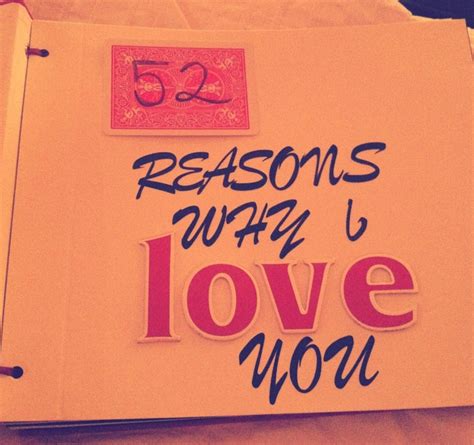 52
REASONS
WHY I
love
YOU